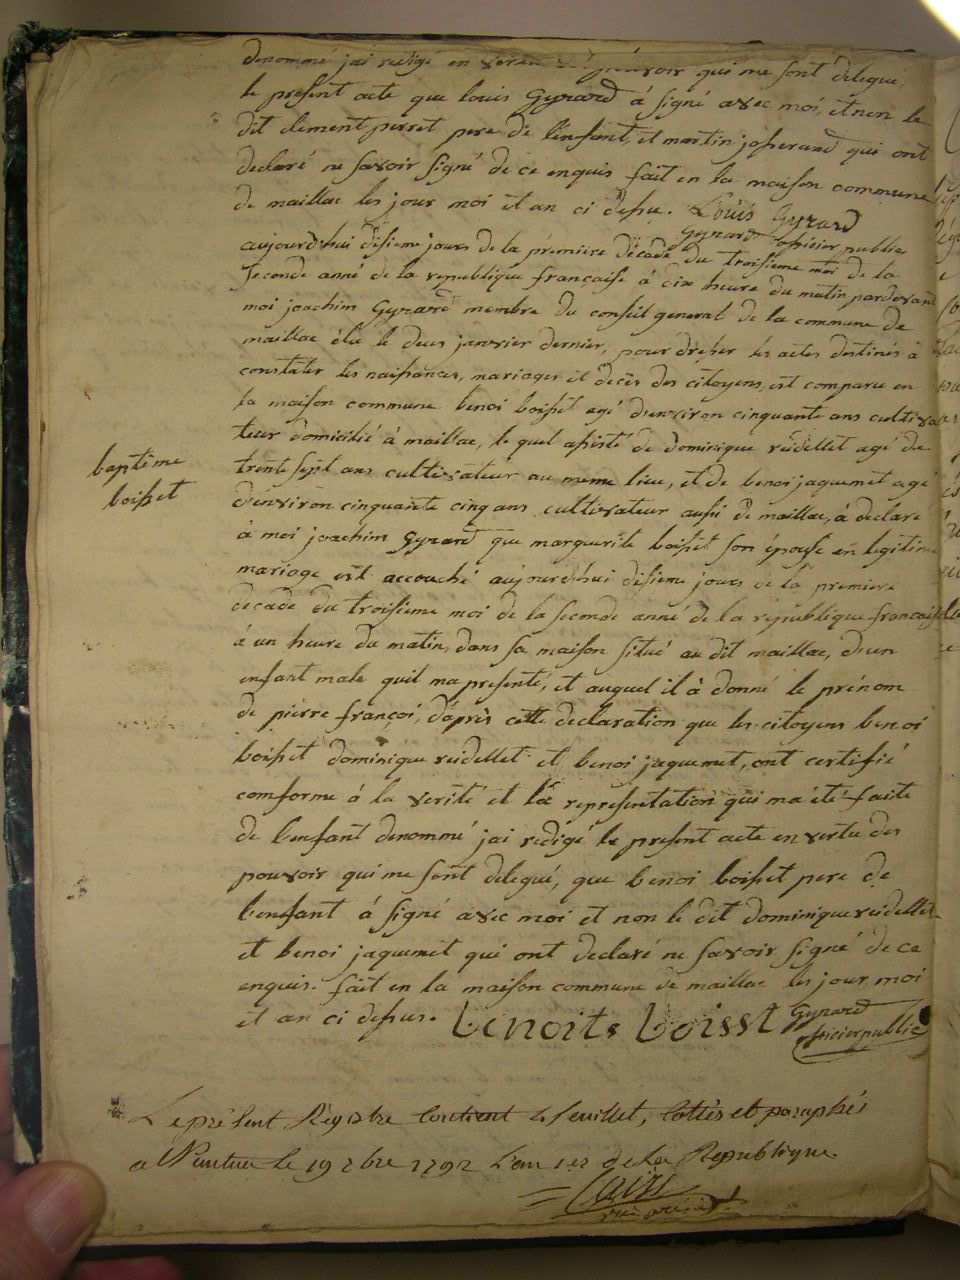 denommé jai redigé en vertu des pouvoir qui me sont delegué,
le present acte que louis Gynard á signé avec moi, et non le
dit clement perret pere de l'enfant, et martin josserand qui ont
declaré ne savoir signé de ce enquis fait en la maison commune
de maillac les jour moi et an ci dessu. Louis Gynard
Gynard officier public
aujourdhui disieme jours de la premiere decade du troisieme moi de la
seconde anné de la republique française á dix heure du matin pardevant
moi joachim Gynard membre du conseil general de la commune de
maillac élu le deux janvier dernier, pour dresser les actes destinés à
constater les naissances, mariages et decès des citoyens, est comparu en
la maison commune benoi boisset agé d'environ cinquante ans cultiva
teur domicilié á maillac, le quel assisté de dominique reidellet agé de
trente sept ans cultivateur au meme lieu, et de benoi jaquemet agé
baptême
boisset
d'environ cinquante cinq ans cultivateur aussi de maillac, á declaré
á moi joachim Gynard que marguerite boisset son épouse en legitime
mariage est accouché aujourdhui disieme jours de la premiere
decade du troisieme moi de la seconde anné de la republique française
á un heure du matin, dans sa maison situé au dit maillac, d'un
enfant male quil ma presenté, et auquel il à donné le prénom
de pierre françoi, d'après cette declaration que les citoyens benoi
boisset dominique reidellet et benoi jaquemet, ont certifié
comforme á la verité et la representation qui ma été faite
de l'enfant denommé jai redigé le present acte en vertu des
pouvoir qui me sont delegué, que benoi boisset pere de
l'enfant á signé avec moi et non le dit dominique reidellet
et benoi jaquemet qui ont declaré ne savoir signé de ce
enquis. fait en la maison commune de maillac les jour moi
et an ci dessus. benoits boisst Gynard
officier public
Le présent Régistre contient feuillet, cottés et paraphés
a Nantua le 19 xbre 1792 L'an 1er de la Republique.